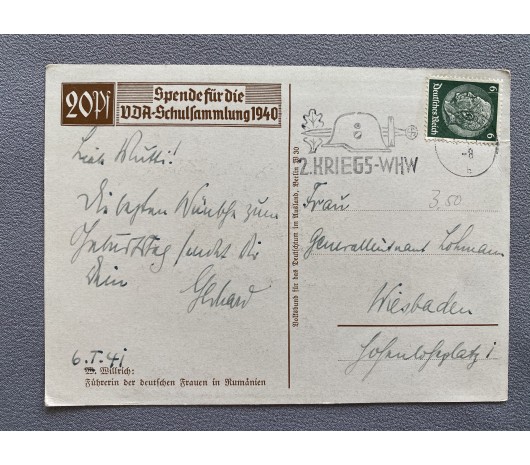 20Pf
Spende für die
VDA-Schulsammlung 1940
Liebe Mutti!
Die besten Wünsche zum
Geburtstag sendet dir
Dein Gerhard
6.I.41
W. Willrich:
Führerin der deutschen Frauen in Rumänien
Volksbund für das Deutschtum im Ausland, Berlin W 30
2. KRIEGS-WHW
6
Deutsches Reich
6
8
Frau
3,50
Generalleutnant Lohmann
Wiesbaden
Hohenloheplatz 1